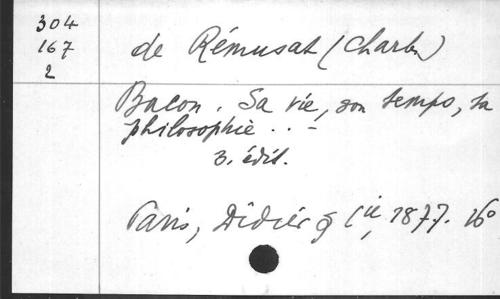 304
167
2
de Rémusat (Charles)
Bacon. Sa vie, son temps, sa
philosophie . . -
3. édit.
Paris, Didier & Cie, 1877. 16°